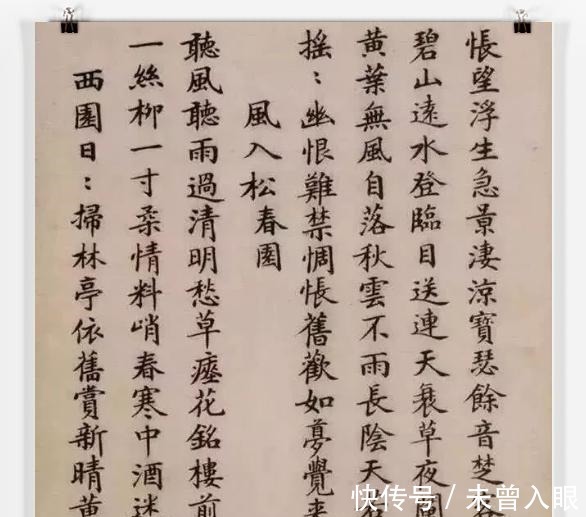 悵望浮生急景淒涼寶瑟餘音楚
碧山遠水登臨目送連天衰草夜
黄葉無風自落秋雲不雨長陰天
摇：幽恨難禁惆悵舊歡如夢覺來
風入松春園
聽風聽雨過清明愁草瘞花銘樓前
一絲柳一寸柔情料峭春寒中酒迷
西園日：掃林亭依舊賞新晴黄
快传号 / 未曾入眼